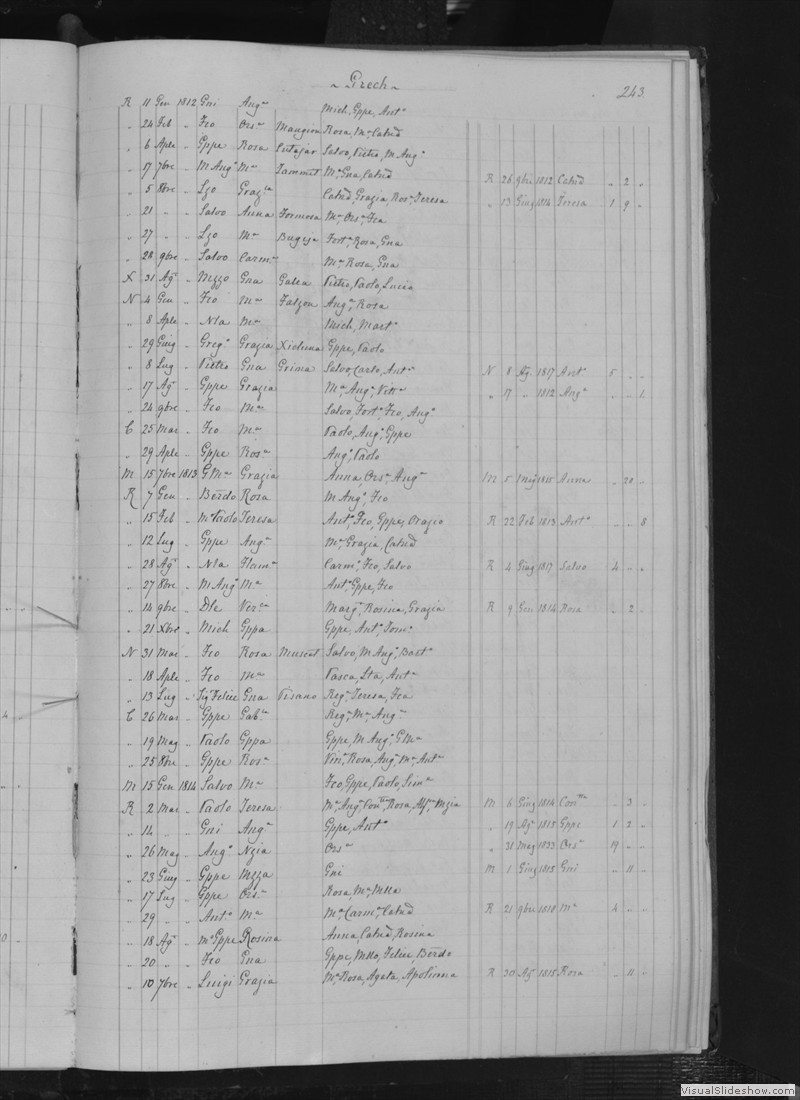 ~ Grech ~
243
R 11 Gen 1812 Gni Angª Mich, Gppe, Antº
„ 24 Feb „ Fco Orsª Mangion Rosa, Mª, Catnª
„ 6 Aple „ Gppe Rosa Portajar Salvo, Pietro, M Angº
„ 17 7bre „ M Angº Mª Zammit Mª, Gna, Catnª R 26 9bre 1812 Catnª „ 2 „
„ 5 8bre „ Lzo Grazia Catnª, Grazia, Rosª, Teresa „ 13 Giug 1814 Teresa 1 9 „
„ 21 „ „ Salvo Anna Formosa Mª, Orsª, Fca
„ 27 „ „ Lzo Mª Bugeja Fortª, Rosa, Gna
„ 28 9bre „ Salvo Carmª Mª, Rosa, Gna
X 31 Agº „ Nzzo Gna Galea Pietro, Paolo, Lucia
N 4 Gen „ Fco Mª Falzon Angª, Rosa
„ 8 Aple „ Nla Mª Mich, Martª
„ 29 Giug „ Gregº Grazia Xicluna Gppe, Paolo
„ 8 Lug „ Pietro Gna Grima Salvo, Carlo, Antº N 8 Agº 1817 Antº 5 „ „
„ 17 Agº „ Gppe Grazia Mª, Angª, Vittª „ 17 „ 1812 Angª „ „ 1
„ 24 9bre „ Fco Mª Salvo, Fortª, Fco, Angº
C 25 Mar „ Fco Mª Paolo, Angº, Gppe
„ 29 Aple „ Gppe Rosª Angº, Paolo
M 15 7bre 1813 G Mª Grazia Anna, Orsª, Angª M 5 Mag 1815 Anna „ 20 „
R 7 Gen „ Berdo Rosa M Angº, Fco
„ 15 Feb „ Mº Paolo Teresa Antº, Fco, Gppe, Orazio R 22 Feb 1813 Antº „ „ 8
„ 12 Lug „ Gppe Angª Mª, Grazia, Catnª
„ 28 Agº „ Nla Flamª Carmº, Fco, Salvo R 4 Giug 1817 Salvo 4 „ „
„ 27 8bre „ M Angº Mª Antº, Gppe, Fco
„ 14 9bre „ Dle Verca Margª, Rosina, Grazia R 9 Gen 1814 Rosa „ 2 „
„ 21 Xbre „ Mich Gppa Gppe, Antº, Tomº
N 31 Mar „ Fco Rosa Muscat Salvo, M Angº, Bartº
„ 18 Aple „ Fco Mª Pasca, Sta, Antª
„ 13 Lug „ Sigr Felice Gna Pisano Regª, Teresa, Fca
C 26 Mar „ Gppe Gabla Regª, Mª, Angª
„ 19 Mag „ Paolo Gppa Gppe, M Angº, G Mª
„ 25 8bre „ Gppe Rosª Vinº, Rosa, Angº, M Antº
M 15 Gen 1814 Salvo Mª Fco, Gppe, Paolo, Simª
R 2 Mar „ Paolo Teresa Mª, Angª, Rosa, Alfº, Nzia M 6 Giug 1814 „ 3 „
„ 14 „ „ Gni Angª Gppe, Antº „ 19 Agº 1815 Gppe 1 2 „
„ 26 Mag „ Angº Nzia Orsª „ 31 Mag 1833 Orsª 19 „ „
„ 23 Giug „ Gppe Nzza Gni M 1 Giug 1815 Gni „ 11 „
„ 17 Lug „ Gppe Orsª Rosa, Mª, Mlla
„ 29 „ „ Antº Mª Mª, Carmª, Catnª R 21 9bre 1818 Mª 4 „ „
„ 18 Agº „ Mº Gppe Rosina Anna, Catnª, Rosina
„ 20 „ „ Fco Gna Gppe, Mllo, Felice, Berdo
„ 10 7bre „ Luigi Grazia Mª, Rosa, Agata, Apolonna R 30 Agº 1815 Rosa „ 11 „
VisualSlideshow.com